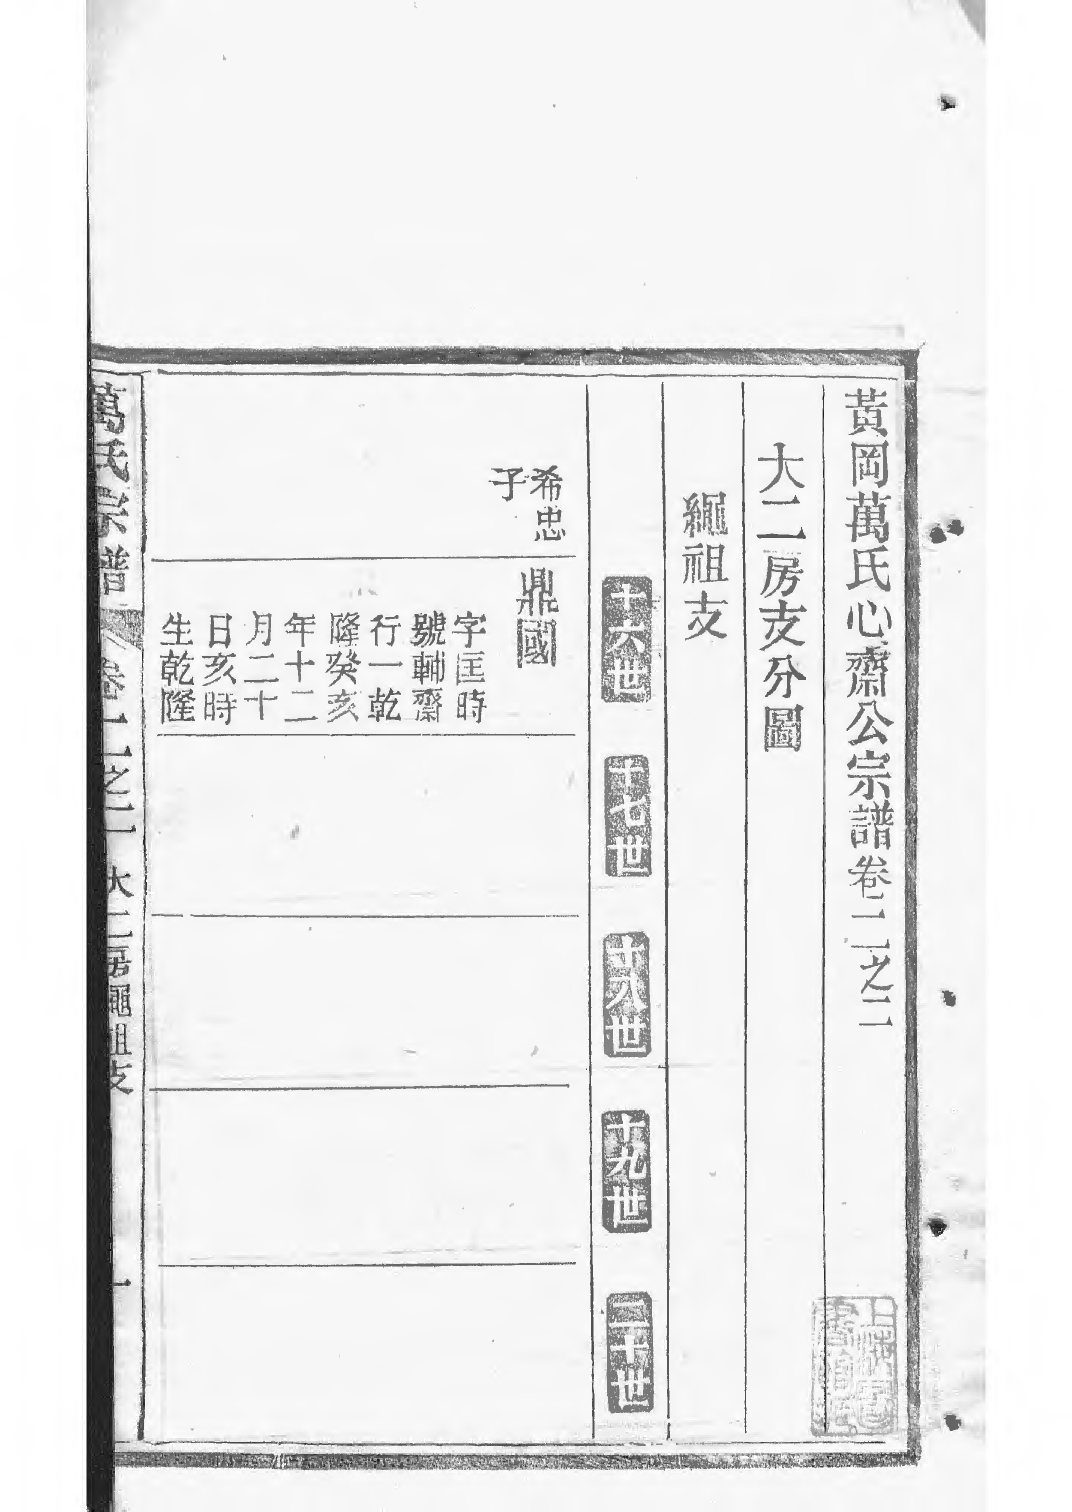 黃岡萬氏心齋公宗譜卷二之二
大二房支分圖
繩祖支
十六世
十七世
十八世
十九世
二十世
希忠
子
鼎國
字匡時
號輔齋
行一乾
隆癸亥
年十二
月二十
日亥時
生乾隆
萬氏宗譜
卷二之二
大二房繩祖支
一